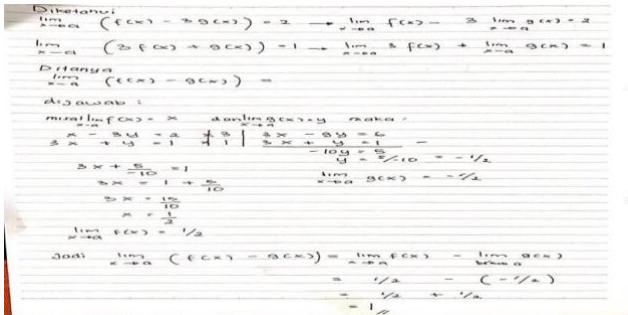 Diketahui
lim x→a (f(x) - 3g(x)) = 2 → lim x→a f(x) - 3 lim x→a g(x) = 2
lim x→a (3f(x) + g(x)) = 1 → lim x→a 3 f(x) + lim x→a g(x) = 1
Ditanya
lim x→a (f(x) - g(x)) =
dijawab :
misal lim x→a f(x) = x dan lim x→a g(x) = y maka
x - 3y = 2 | x3 | 3x - 9y = 6
3x + y = 1 | x1 | 3x + y = 1 -
-10y = 5
y = 5/-10 = -1/2
3x + 5/-10 = 1
lim x→a g(x) = -1/2
3x = 1 + 5/10
3x = 15/10
x = 1/2
lim x→a f(x) = 1/2
Jadi lim x→a (f(x) - g(x)) = lim x→a f(x) - lim g(x)
= 1/2 - (-1/2)
= 1/2 + 1/2
= 1 //